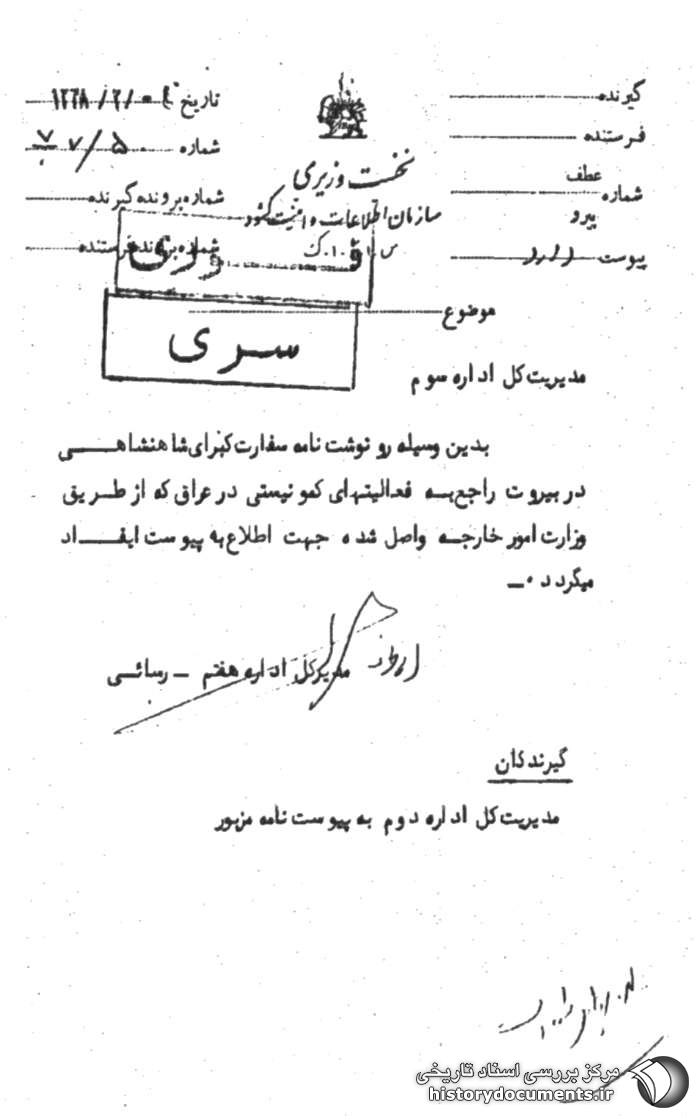 گیرنده
فرستنده
عطف
شماره
پیرو
پیوست دارد
نخست وزیری
سازمان اطلاعات و امنیت کشور
س ا ک
تاریخ
شماره
شماره پرونده گیرنده
شماره پرونده فرستنده
فوری
موضوع
سری
مدیریت کل اداره سوم
بدین وسیله رونوشت نامه سفارت کبرای شاهنشاهی
در بیروت راجع به فعالیتهای کمونیستی در عراق که از طریق
وزارت امور خارجه واصل شده جهت اطلاع به پیوست ایفاد
میگردد .ــ
مدیرکل اداره هفتم ــ رسائی
گیرندگان
مدیریت کل اداره دوم به پیوست نامه مزبور
مرکز بررسی اسناد تاریخی
historydocuments.ir